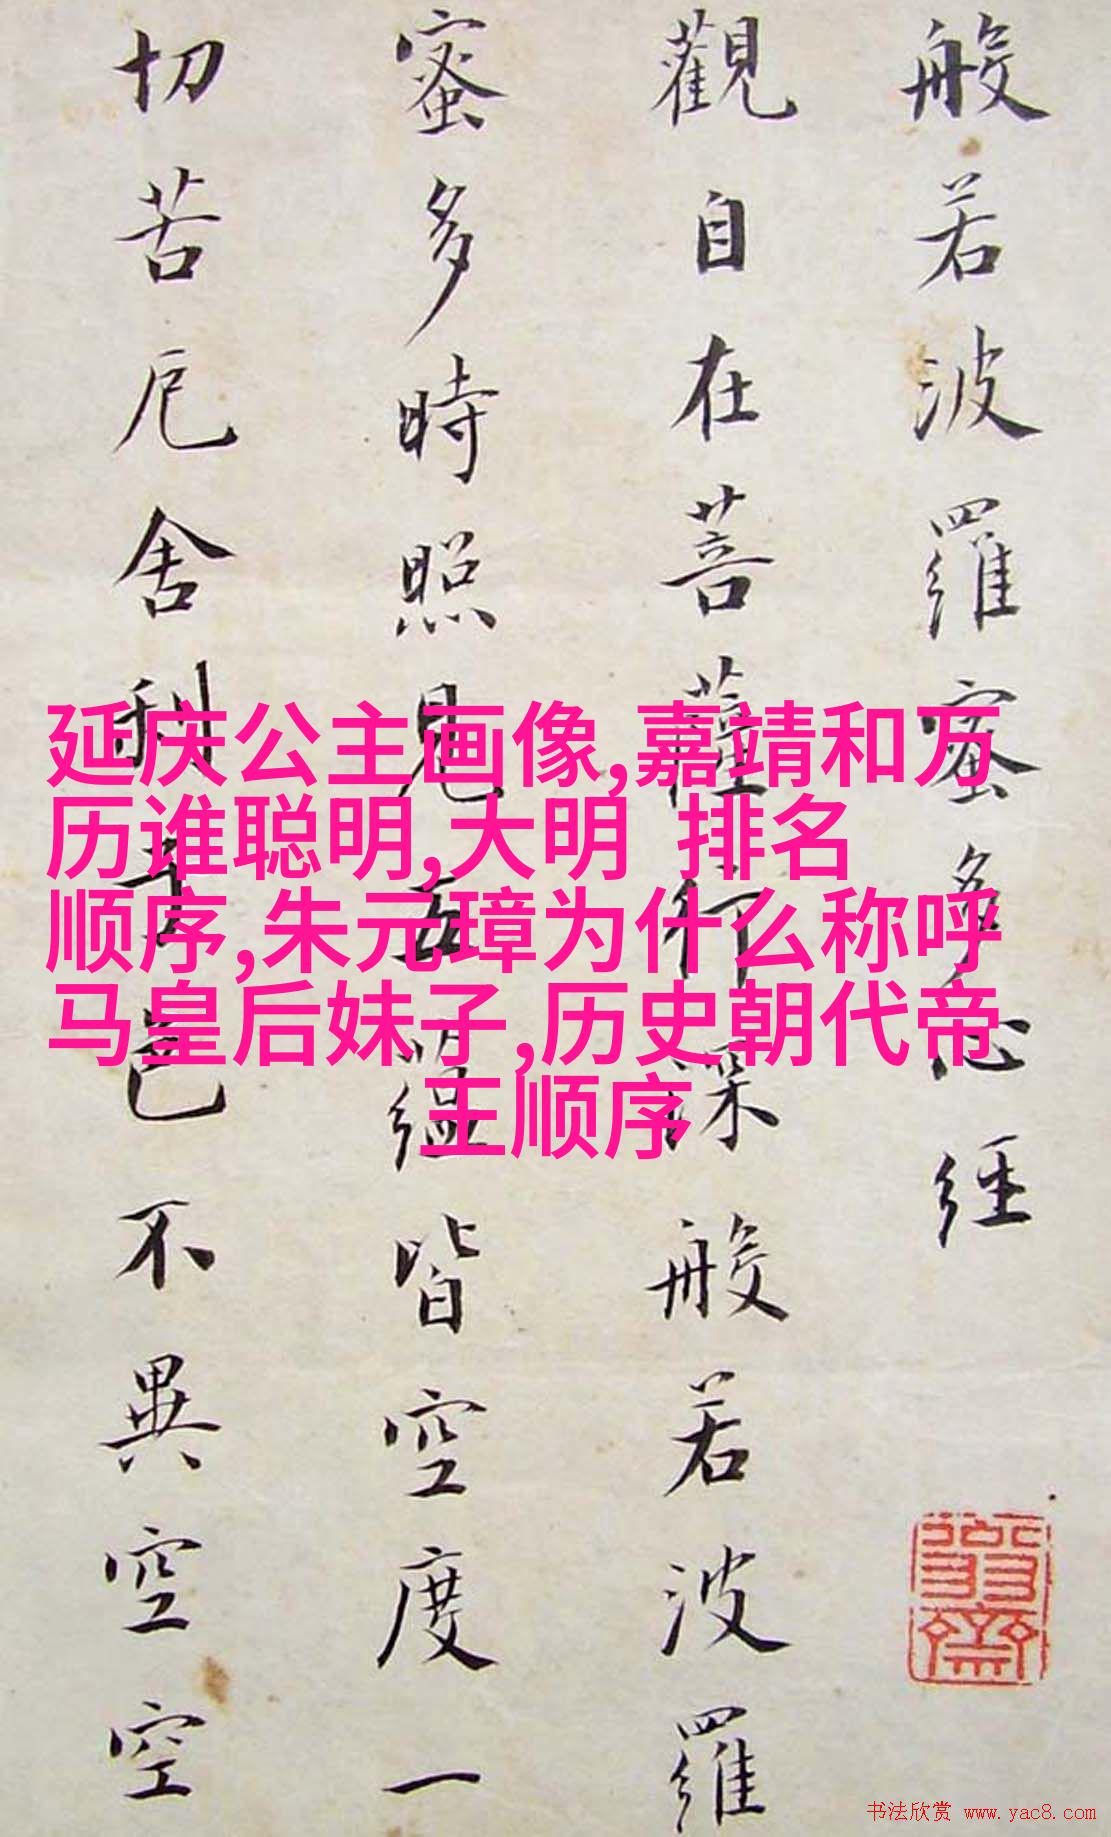 般若波羅蜜多心經
觀自在菩薩行深般若波羅
蜜多時照見五蘊皆空度一
切苦厄舍利子色不異空空
延庆公主画像,嘉靖和万
历谁聪明,大明 排名
顺序,朱元璋为什么称呼
马皇后妹子,历史朝代帝
王顺序
书法欣赏 www.yac8.com